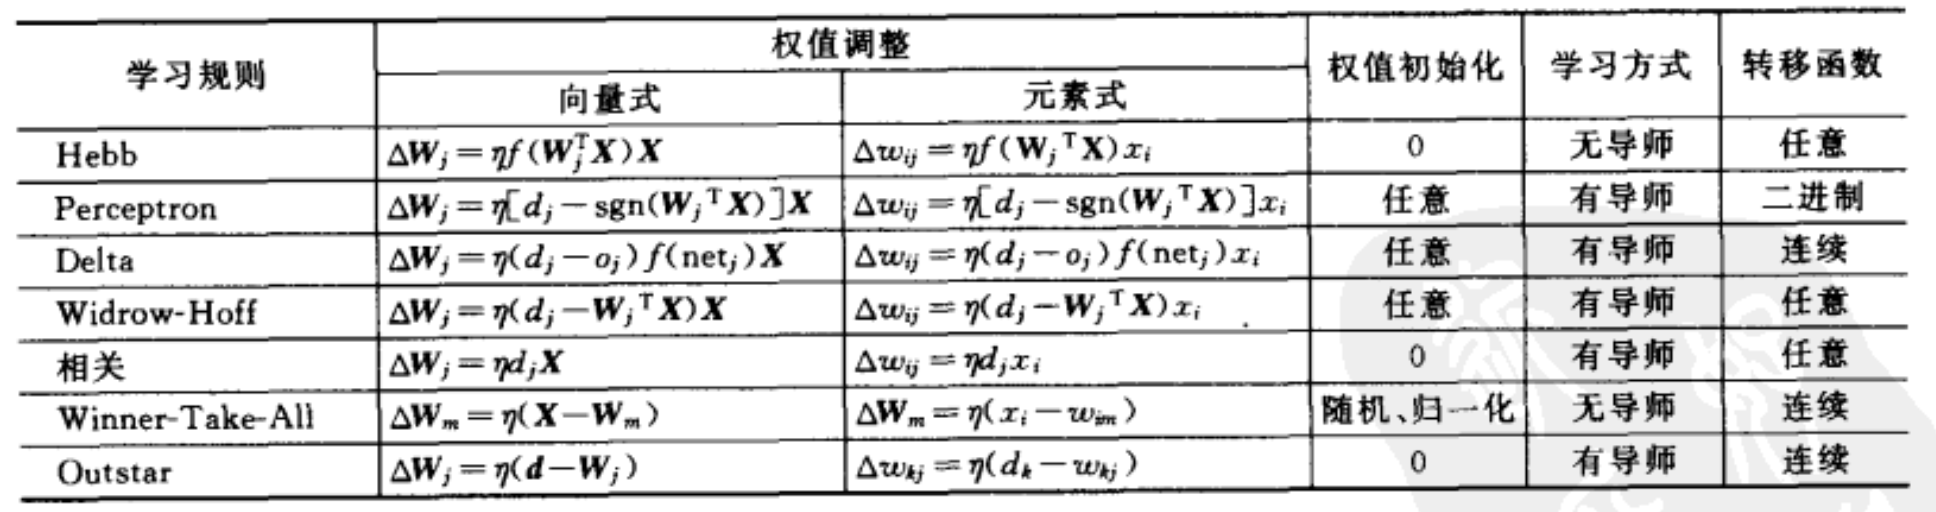 学习规则 权值调整 权值初始化 学习方式 转移函数
向量式 元素式
Hebb ΔW_j = ηf(W_j^T X)X Δw_ij = ηf(W_j^T X)x_i 0 无导师 任意
Perceptron ΔW_j = η[d_j − sgn(W_j^T X)]X Δw_ij = η[d_j − sgn(W_j^T X)]x_i 任意 有导师 二进制
Delta ΔW_j = η(d_j − o_j)f(net_j)X Δw_ij = η(d_j − o_j)f(net_j)x_i 任意 有导师 连续
Widrow-Hoff ΔW_j = η(d_j − W_j^T X)X Δw_ij = η(d_j − W_j^T X)x_i 任意 有导师 任意
相关 ΔW_j = ηd_j X Δw_ij = ηd_j x_i 0 有导师 任意
Winner-Take-All ΔW_m = η(X − W_m) ΔW_m = η(x_i − w_im) 随机、归一化 无导师 连续
Outstar ΔW_j = η(d − W_j) Δw_kj = η(d_k − w_kj) 0 有导师 连续